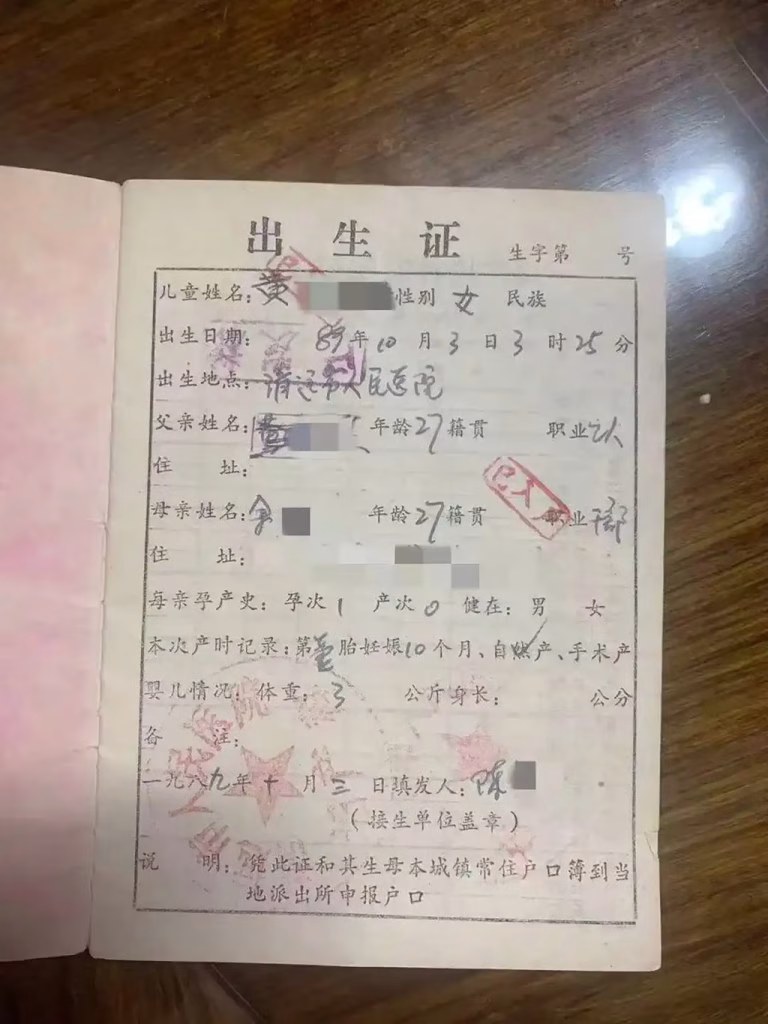 出生证
生字第 号
儿童姓名：黄 性别 女 民族
出生日期： 89年10月3日3时25分
出生地点：清远市人民医院
父亲姓名：黄 年龄27籍贯 职业
住 址：
母亲姓名：余 年龄27籍贯 职业干部
已入
住 址：
每亲孕产史：孕次1 产次0 健在：男 女
本次产时记录：第 胎妊娠10个月、自然产、手术产
婴儿情况：体重：3 公斤身长： 公分
备 注：
一九八九年十月三日填发人：陈
（接生单位盖章）
说 明：凭此证和其生母本城镇常住户口簿到当
地派出所申报户口